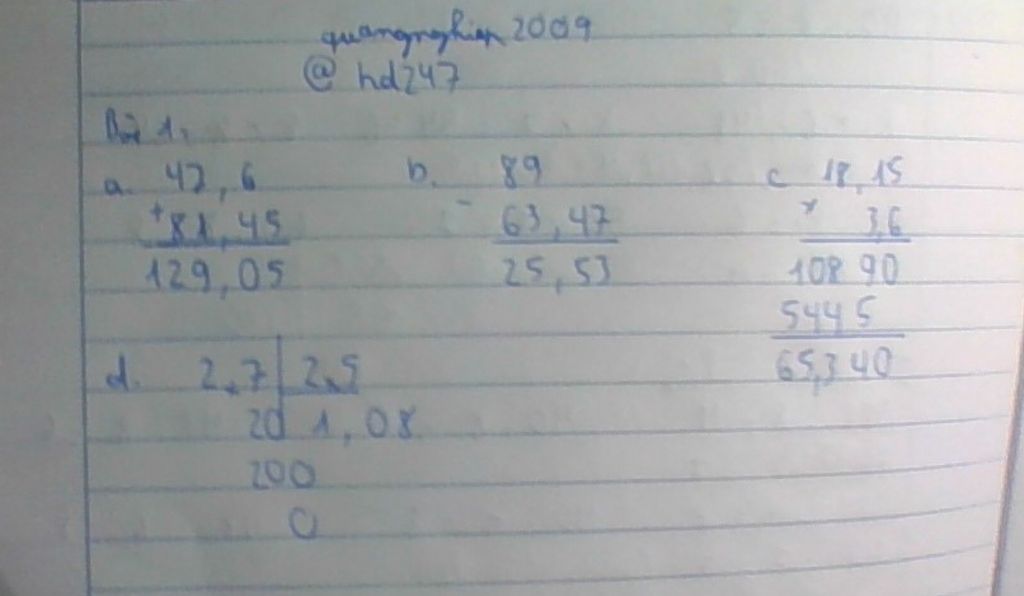 quangnghian 2009
@ hd247
Bài 1,
a. 47,6 b. 89 c 18,15
+ 81,45 - 63,47 x 3,6
129,05 25,53 108 90
544 5
d. 2,7 2,5 65,340
20 1,08
200
0